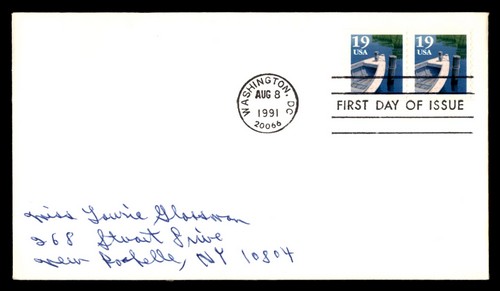 19 USA 19 USA
WASHINGTON, DC
AUG 8
1991
20066
FIRST DAY OF ISSUE
Miss Laurie Glassman
268 Stuart Drive
New Rochelle, NY 10804